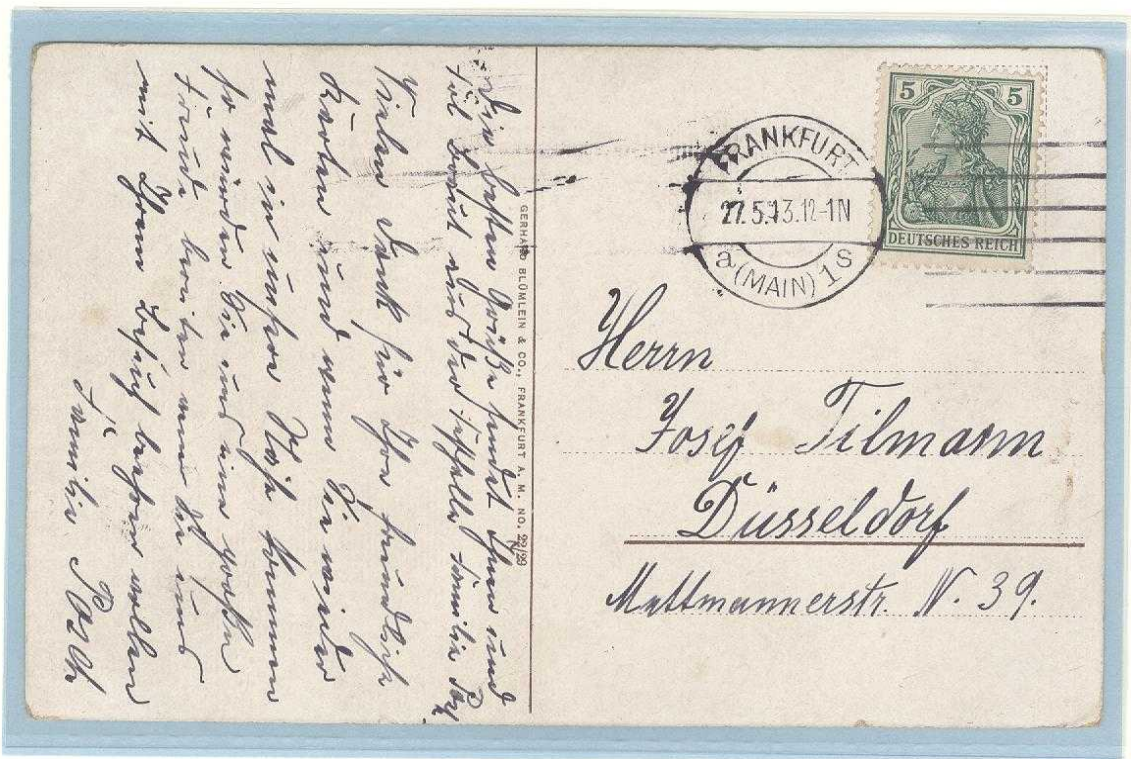 Die besten Grüße sendet Ihnen und
Frl Braut aus der Familie
Vielen Dank für Ihre freundliche
Karten und wenn Sie wieder
mal in unsere Nähe kommen
so würden Sie uns eine große
Freude bereiten wenn Sie uns
mit Ihrem Besuch beehren wollen
Familie
GERHARD BLÜMLEIN & CO., FRANKFURT A. M. NO. 29/29
FRANKFURT
27.5.13.12-1N
a (MAIN) 1S
5 5
DEUTSCHES REICH
Herrn
Josef Tilmann
Düsseldorf
Mettmannerstr. N. 39.